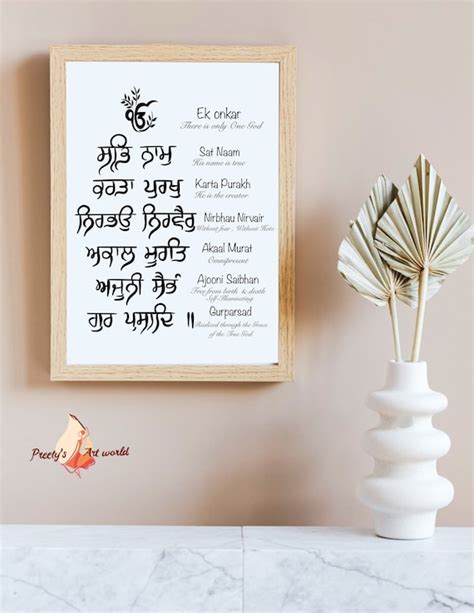 ੴ Ek onkar
There is only One God
ਸਤਿ ਨਾਮੁ Sat Naam
His name is true
ਕਰਤਾ ਪੁਰਖੁ Karta Purakh
He is the creator
ਨਿਰਭਉ ਨਿਰਵੈਰੁ Nirbhau Nirvair
Without fear , Without Hate
ਅਕਾਲ ਮੂਰਤਿ Akaal Murat
Omnipresent
ਅਜੂਨੀ ਸੈਭੰ Ajooni Saibhan
Free from birth & death
Self-Illuminating
ਗੁਰ ਪ੍ਰਸਾਦਿ ॥ Gurparsad
Realized through the Grace
of the True God
Preety's Art world